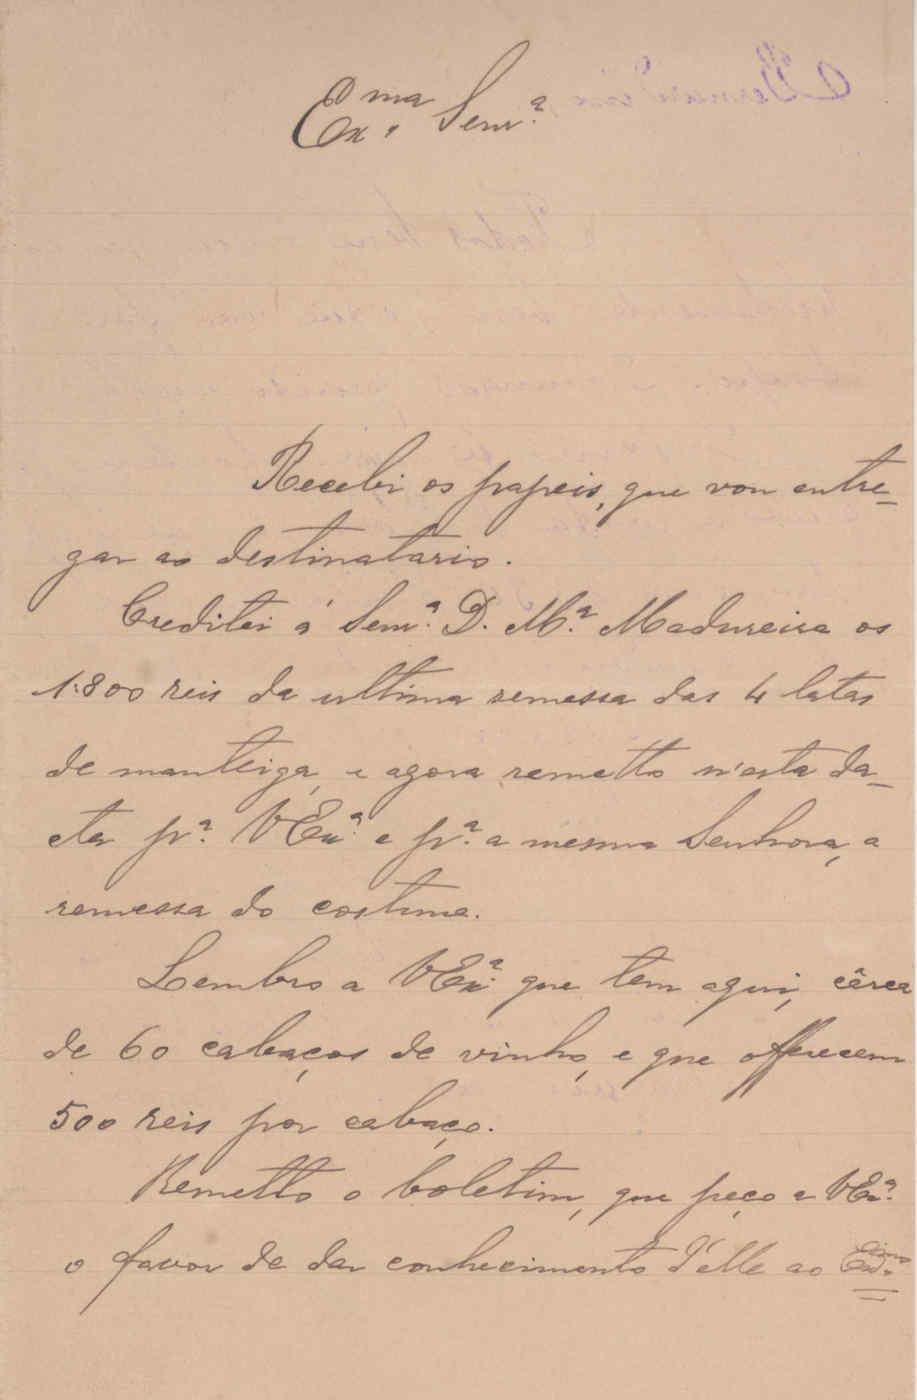 Ex.ma Senr.ª
Recebi os papeis, que vou entre-
gar ao destinatario.
Creditei á Senr.ª D. M.ª Madureira os
1:800 reis da ultima remessa das 4 latas
de manteiga, e agora remetto n'esta da-
cta pr.ª VEx.ª e pr.ª a mesma Senhora, a
remessa do costume.
Lembro a VEx.ª que tem aqui, cêrca
de 60 cabaços de vinho, e que offerecem
500 reis por cabaço.
Remetto o boletim, que peço a VEx.ª
o favor de dar conhecimento d'elle ao